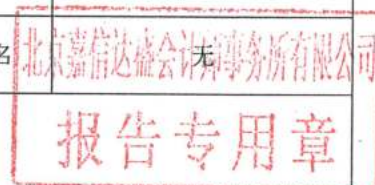 名 无
北京嘉信达盛会计师事务所有限公司
报告专用章